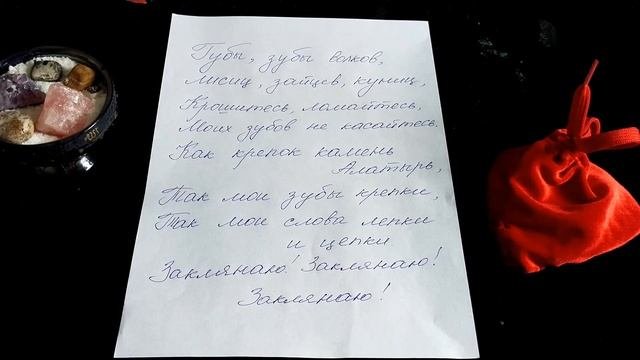 Губы, зубы волков,
лисиц, зайцев, куниц,
Крошитесь, ломайтесь,
Моих зубов не касайтесь.
Как крепок камень
Алатырь,
Так мои зубы крепки,
Так мои слова лепки
и цепки.
Заклянаю! Заклянаю!
Заклянаю!